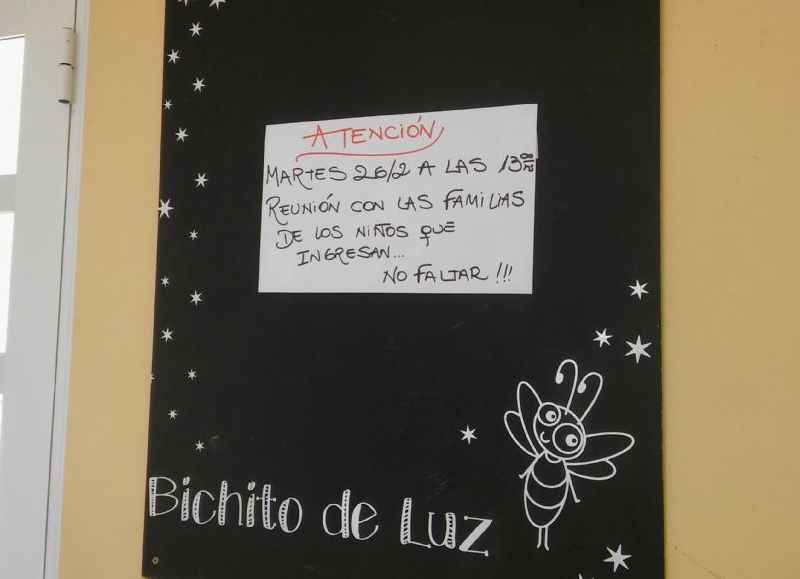 ATENCIÓN
MARTES 26/2 A LAS 13 00 hs
REUNIÓN CON LAS FAMILIAS
DE LOS NIÑOS QUE
INGRESAN...
NO FALTAR !!!
Bichito de Luz